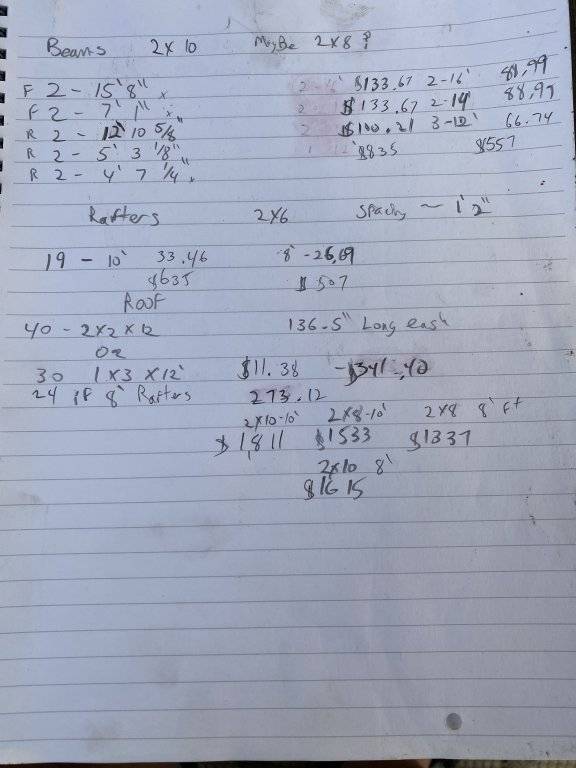 Beams 2x10 Maybe 2x8?
F 2 - 15' 8" x 2-16' $133.67 2-16' 88.99
F 2 - 7' 1" x $133.67 2-14' 88.99
R 2 - 12' 10 5/8 $100.21 3-12' 66.74
R 2 - 5' 3 1/8" $835 $557
R 2 - 4' 7 1/4"
Rafters 2x6 spacing ~ 1' 2"
19 - 10' 33.46 8' - 26.69
$635 $507
Roof
40 - 2x2x12 136.5" Long each
OR
30 1x3x12' $11.38 - $341.40
24 IF 8' Rafters 273.12
2x10-10' 2x8-10' 2x8 8' Ft
$1,811 $1533 $1337
2x10 8'
$1615